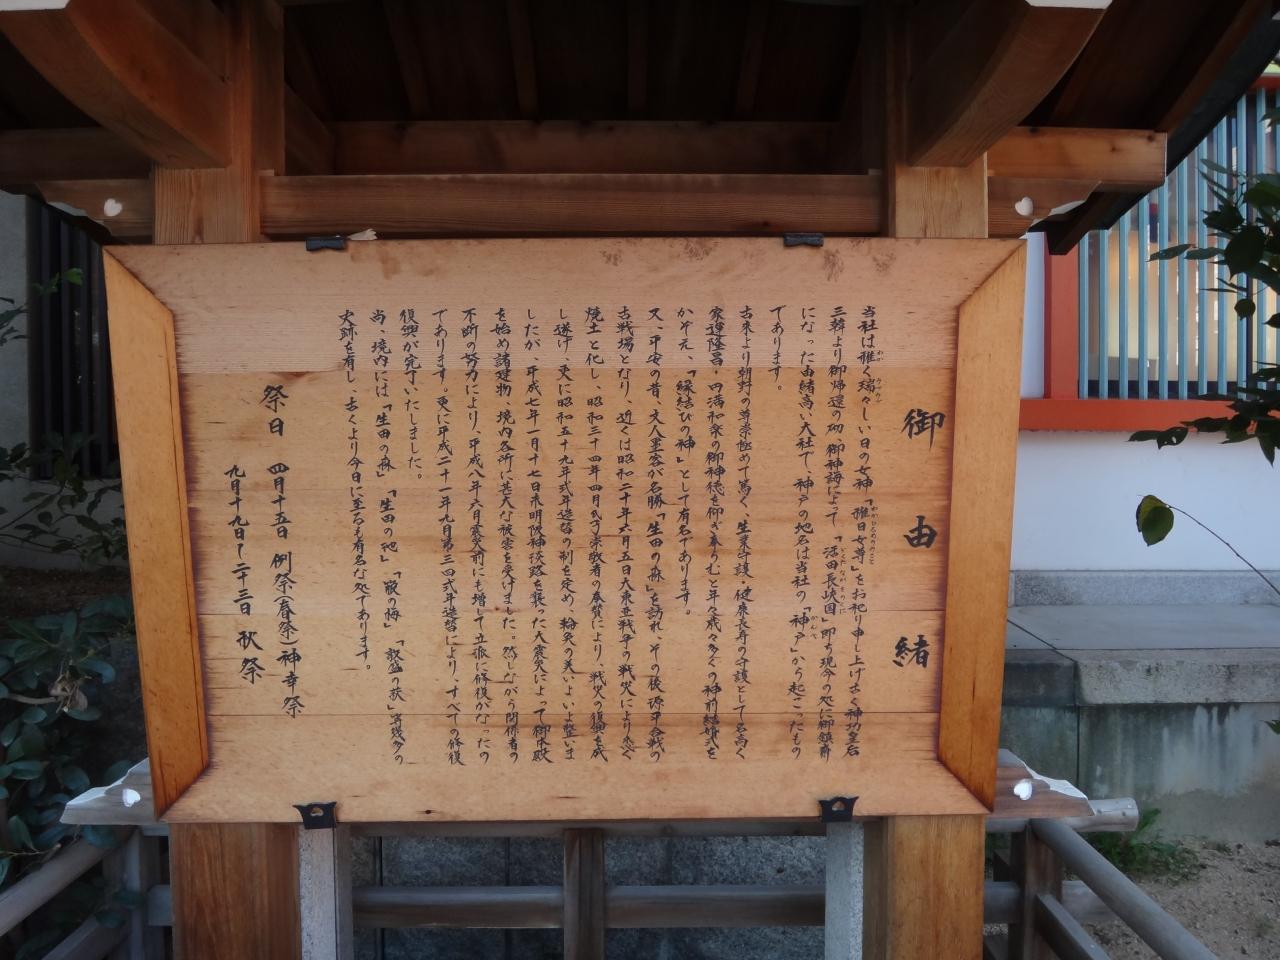 御由緒
当社は稚く瑞々しい日の女神「稚日女尊」をお祀り申し上げ古く神功皇后
三韓より御帰還の砌、御神誨によって「活田長峡国」即ち現今の処に御鎮斎
になった由緒高い大社で、神戸の地名は当社の「神戸」から起こったもの
であります。
古来より朝野の尊崇極めて篤く、生業守護・健康長寿の守護として名高く
家運隆昌・円満和楽の御神徳を仰ぎ奉りむと年々歳々多くの神前結婚式を
かぞえ、「縁結びの神」として有名であります。
又、平安の昔、文人墨客が名勝「生田の森」を訪れ、その後源平合戦の
古戦場となり、近くは昭和二十年六月五日大東亜戦争の戦災により悉く
焼土と化し、昭和三十四年四月氏子崇敬者の奉賛により、戦災の復興を成
し遂げ、更に昭和五十九年式年造替の制を定め、輪奐の美いよいよ整いま
したが、平成七年一月十七日未明阪神淡路を襲った大震災によって御本殿
を始め諸建物、境内各所に甚大な被害を受けました。然しながら関係者の
不断の努力により、平成八年六月震災前にも増して立派に修復がなったの
であります。更に平成二十一年九月第三四式年造替により、すべての修復
復興が完了いたしました。
尚、境内には「生田の森」「生田の池」「箙の梅」「敦盛の萩」等幾多の
史跡を有し、古くより今日に至るも有名な処であります。
祭日 四月十五日 例祭(春祭)神幸祭
九月十九日〜二十三日 秋祭